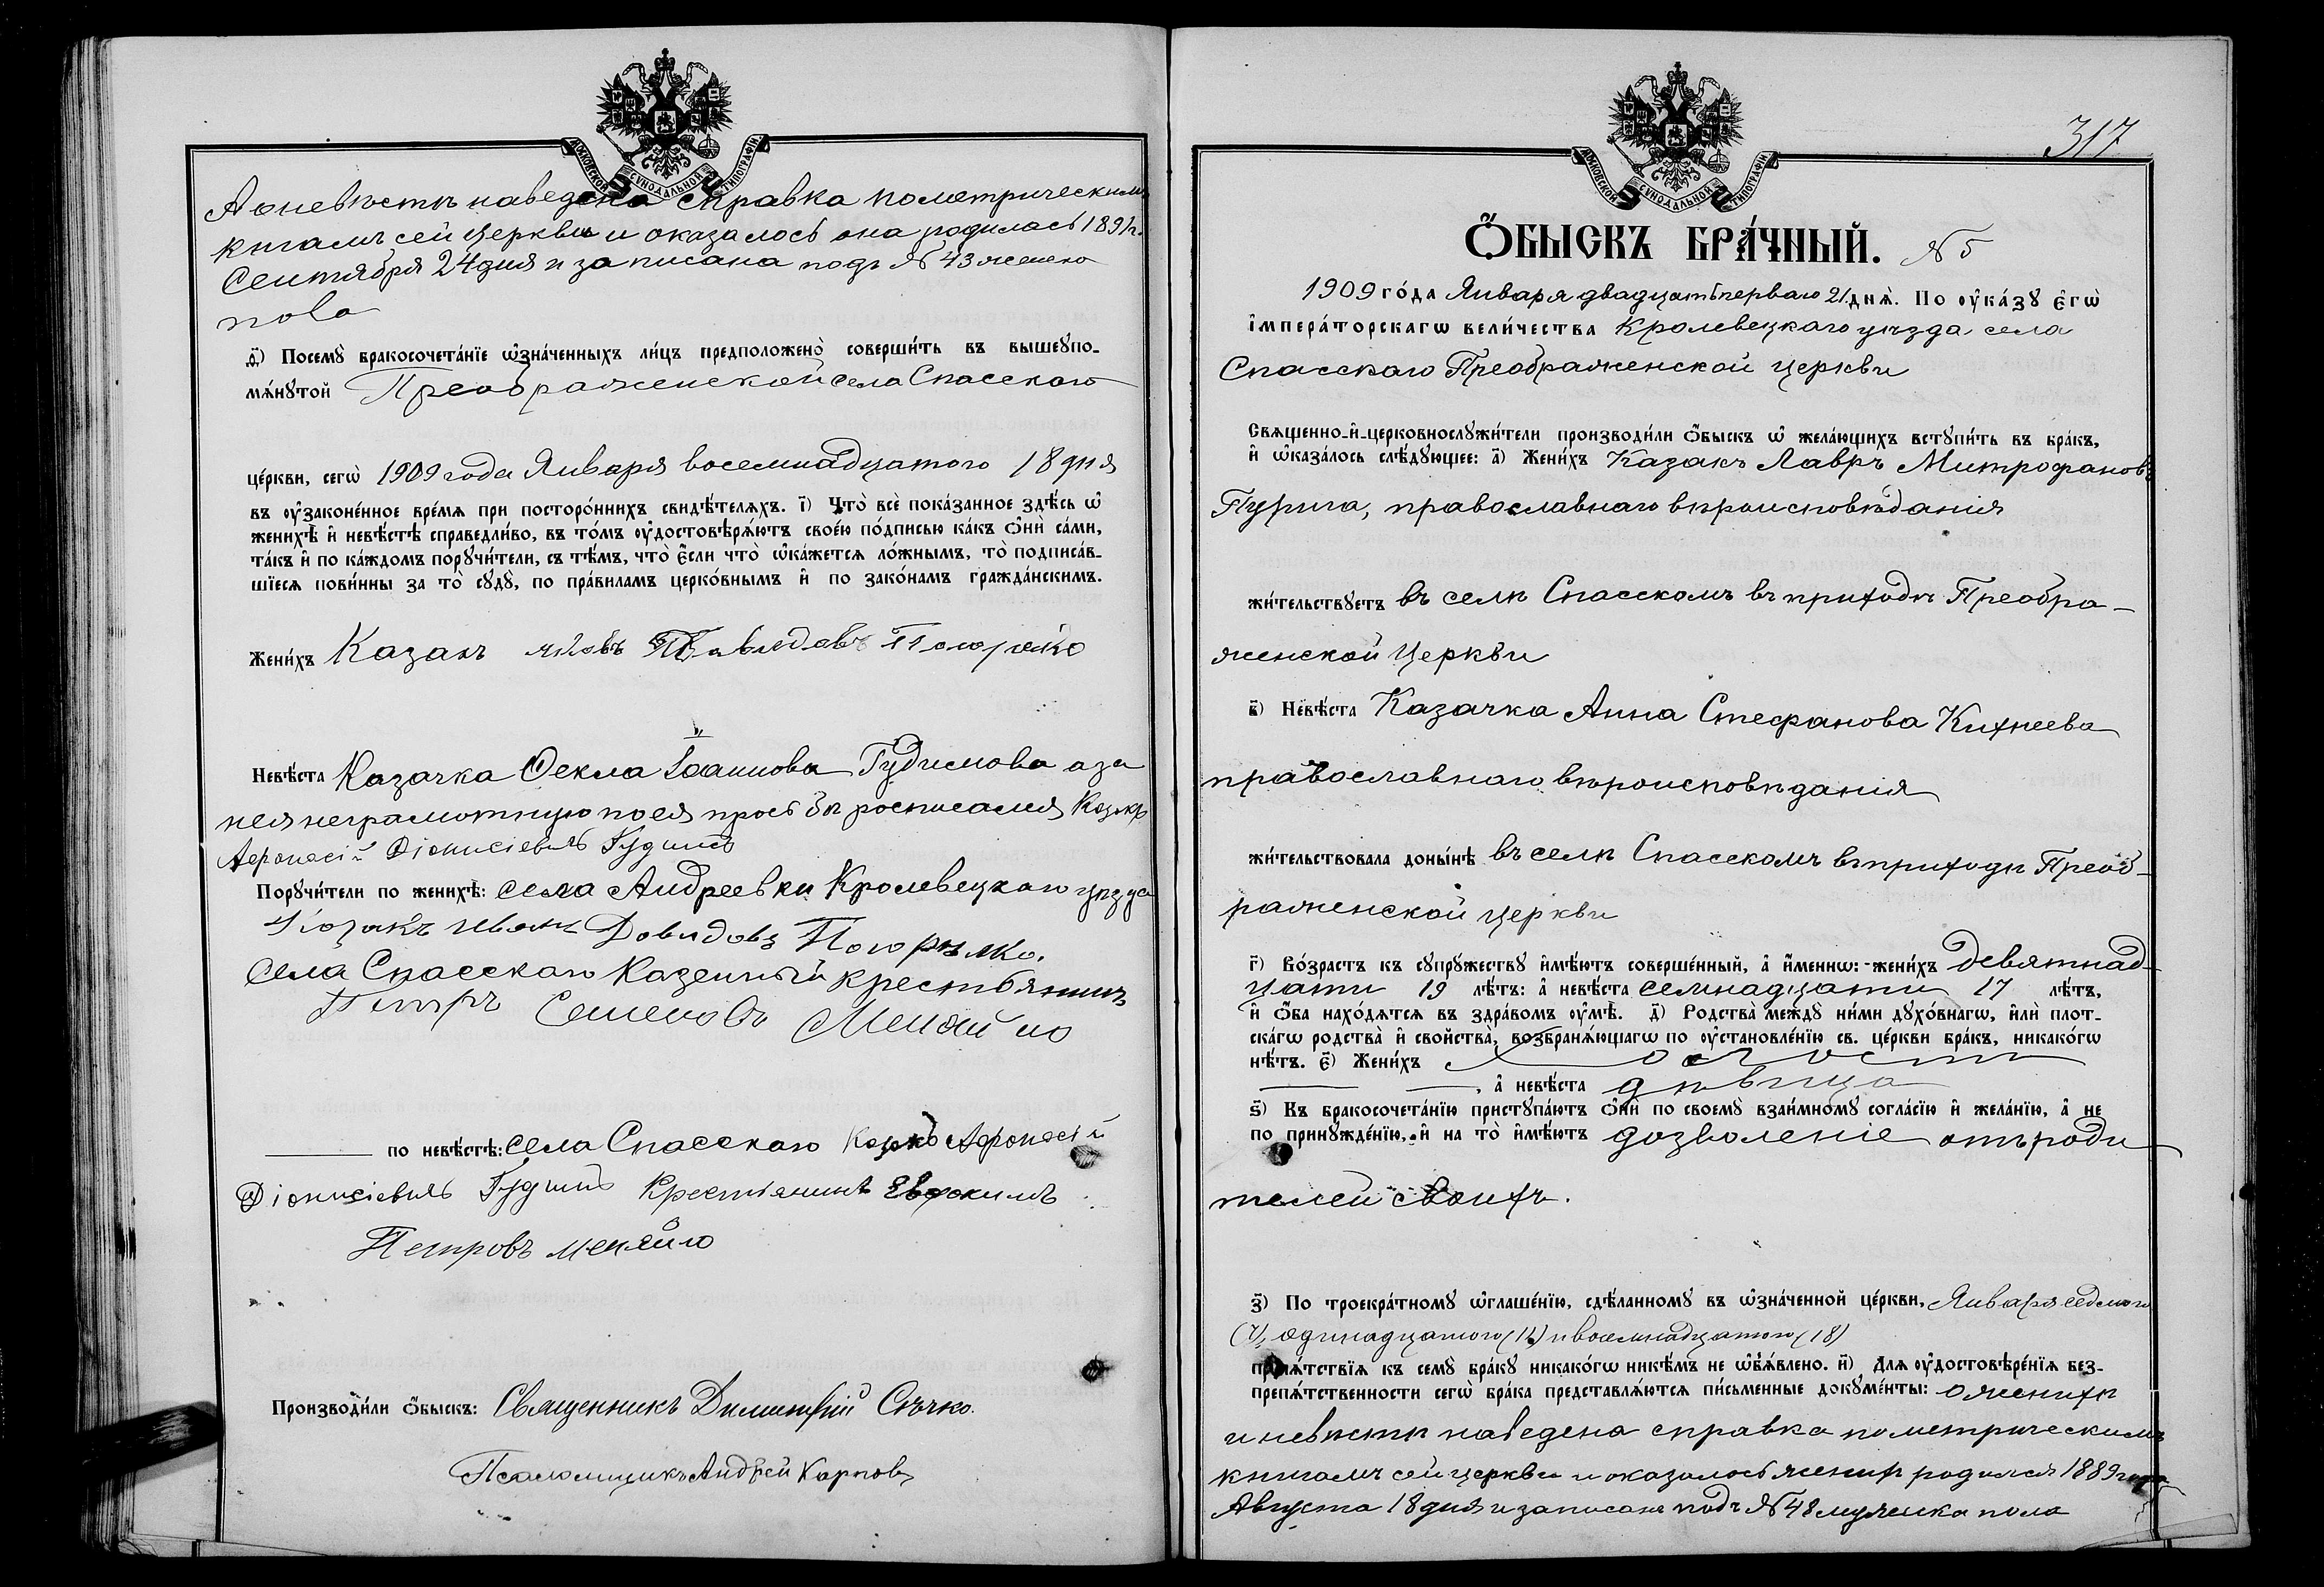 МОСКОВСКОЙ СѴНОДАЛЬНОЙ ТИПОГРАФІИ
А о невѣстѣ наведена справка по метрическимъ
книгамъ сей церкви и оказалось она родилась 1891 г.
Сентября 24 дня и записана подъ № 43 женско
пола
д҃і) Посемꙋ̀ бракосочета́нїе ѡ҆зна́ченныхъ ли́цъ предположено̀ соверши́ть въ вышеꙋпо-
мѧ́нꙋтой Преображенской села Спасскаго
це́ркви, сегѡ̀ 1909 года Января восемнадцатого 18 дня
въ ᲂу҆законе́нное вре́мѧ при посторо́ннихъ свидѣ́телѧхъ. і҃) Что̀ всѐ пока́занное здѣ́сь ѡ҆
женихѣ̀ и҆ невѣ́стѣ справедли́во, въ то́мъ ᲂу҆достовѣрѧ́ютъ свое́ю по́дписью ка́къ ѻ҆нѝ са́ми,
та́къ и҆ по ка́ждомъ порꙋчи́тели, съ тѣ́мъ, что̀ є҆́сли что̀ ѡ҆ка́жетсѧ ло́жнымъ, то̀ подписа́в-
шїесѧ пови́нны за то̀ сꙋдꙋ̀, по пра́виламъ церко́внымъ и҆ по зако́намъ гражда́нскимъ.
Жени́хъ Казакъ Яковъ Давидовъ Погорѣлко
Невѣ́ста Казачка Ѳекла Іоаннова Гудимова а за
нея неграмотную по ея просьбѣ росписался Казакъ
Афонасій Діонисіевичъ Гудимъ
Порꙋчи́тели по женихѣ̀: села Андреевки Кролевецкаго уѣзда
Козакъ Иванъ Довидовъ Погорѣлко.
Села Спасскаго Казенный крестьянинъ
Петръ Семеновъ Меняйло
по невѣ́стѣ: села Спасскаго Казакъ Афонасій
Діонисіевичъ Гудимъ Крестьянинъ Евдокимъ
Петровъ Меняйло
Производи́ли ѻ҆́быскъ: Священникъ Димитрій Сѣчко.
Псаломщикъ Андрей Карповъ
317
МОСКОВСКОЙ СѴНОДАЛЬНОЙ ТИПОГРАФІИ
Ѻ҆́БЫСКЪ БРА́ЧНЫЙ. № 5
1909 го́да Января двадцать перваго 21 днѧ̀. По ᲂу҆ка́зꙋ є҆гѡ̀
і҆мпера́торскагѡ вели́чества Кролевецкаго уѣзда села
Спасскаго Преображенской церкви
Свѧщенно-и҆-церковнослꙋжи́тели производи́ли ѻ҆́быскъ ѡ҆ жела́ющихъ встꙋпи́ть въ бра́къ,
и҆ ѡ҆каза́лось слѣ́дꙋющее: а҃) Жени́хъ Казакъ Лавръ Митрофановъ
Пурига, православнаго вѣроисповѣданія
жи́тельствꙋетъ въ селѣ Спасскомъ въ приходѣ Преобра-
женской Церкви
в҃) Невѣ́ста Казачка Анна Стефанова Кихнеева
православнаго вѣроисповѣданія
жи́тельствовала доны́нѣ въ селѣ Спасскомъ въ приходѣ Преоб-
раженской церкви
г҃) Во́зрастъ къ сꙋпрꙋжествꙋ и҆мѣ́ютъ соверше́нный, а҆ и҆́меннѡ: жени́хъ девятнад-
цати 19 лѣ́тъ: а҆ невѣ́ста семнадцати 17 лѣ́тъ,
и҆ ѻ҆́ба нахо́дѧтсѧ въ здра́вомъ ᲂу҆мѣ̀. д҃) Родства̀ междꙋ ни́ми дꙋхо́внагѡ, и҆лѝ плот-
ска́гѡ родства̀ и҆ свойства̀, возбранѧ́ющагѡ по ᲂу҆становле́нїю св. це́ркви бра́къ, никако́гѡ
нѣ́тъ. є҃) Жени́хъ холостъ
, а҆ невѣ́ста дѣвица
ѕ҃) Къ бракосочета́нїю пристꙋпа́ютъ ѻ҆нѝ по своемꙋ̀ взаи́мномꙋ согла́сїю и҆ жела́нїю, а҆ не
по принꙋжде́нїю, и҆ на то̀ и҆мѣ́ютъ дозволеніе отъ роди
телей своихъ.
з҃) По троекра́тномꙋ ѡ҆глаше́нїю, сдѣ́ланномꙋ въ ѡ҆зна́ченной це́ркви, Января седмого
(7), одинадцатого (11) и восемнадцатого (18)
препѧ́тствїѧ къ семꙋ̀ бра́кꙋ никако́гѡ никѣ́мъ не ѡ҆б̾ѧ́влено. и҃) Длѧ ᲂу҆достовѣре́нїѧ без-
препѧ́тственности сегѡ̀ бра́ка представлѧ́ютсѧ пи́сьменные докꙋме́нты: о женихѣ
и невѣстѣ наведена справка по метрическимъ
книгамъ сей церкви и оказалось женихъ родился 1889 года
Августа 18 дня и записанъ подъ № 48 мужска пола